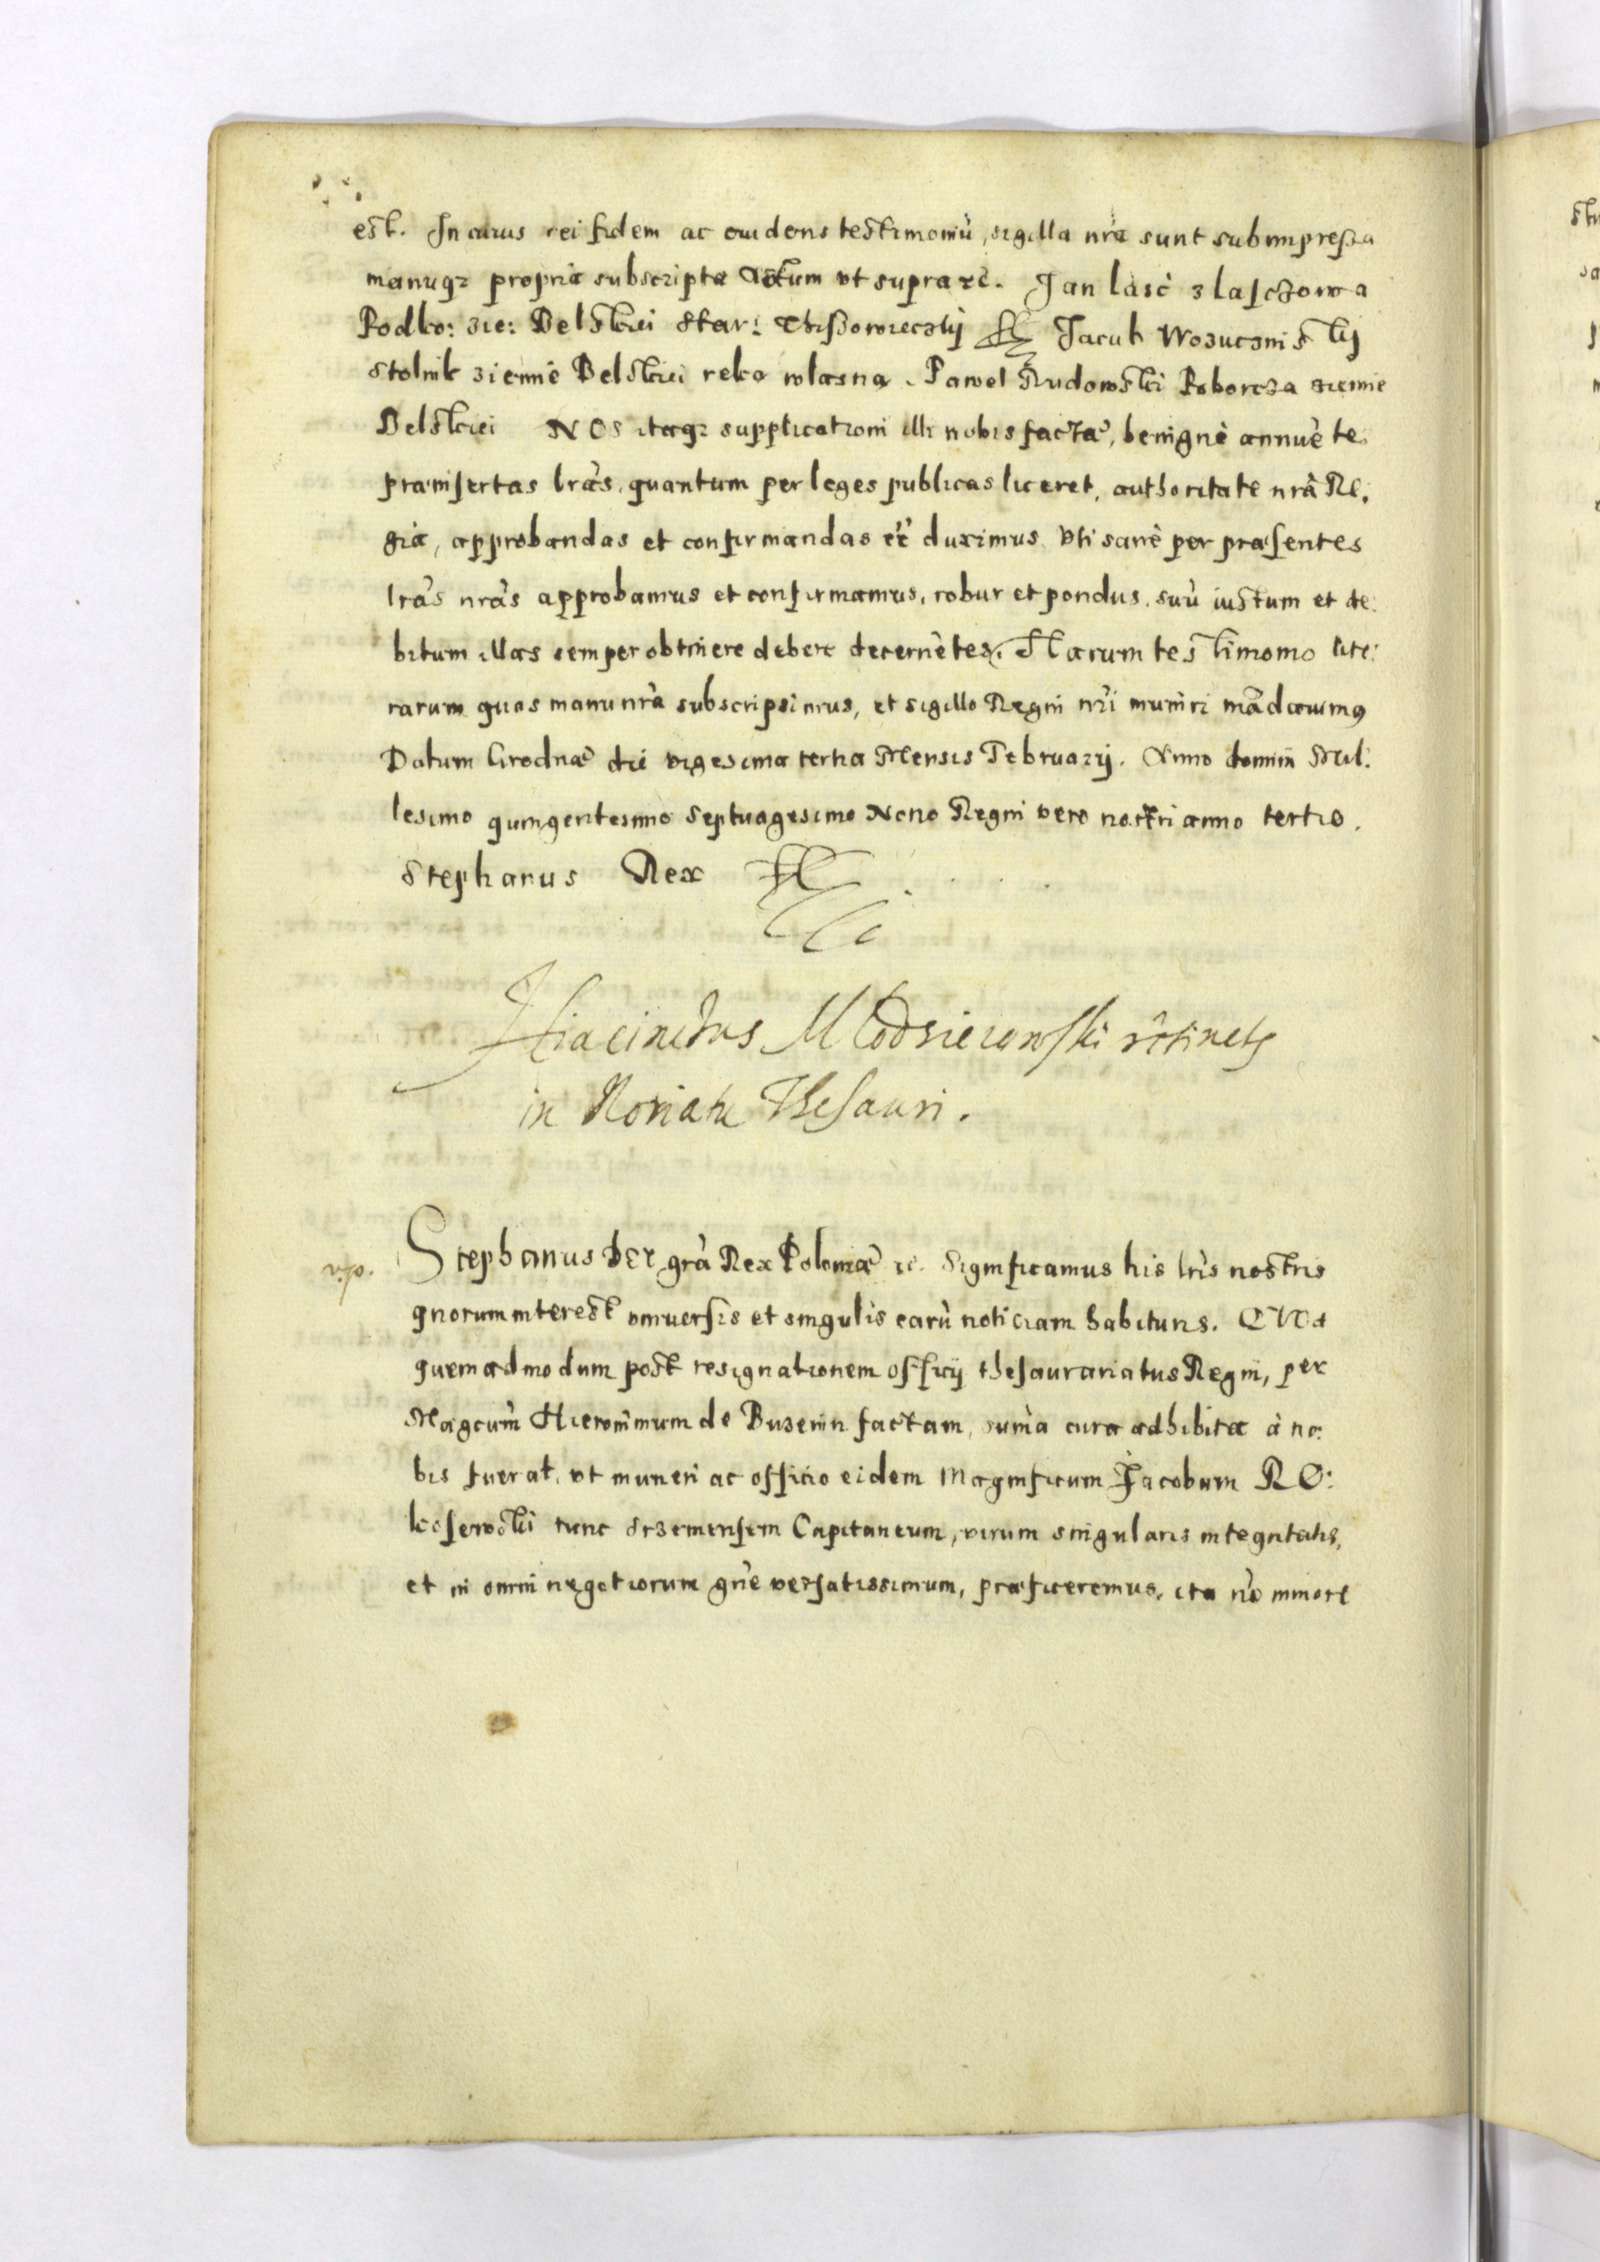 est. In cuius rei fidem ac euidens testimoniũ, sigilla nrã sunt subimpressa
manuqz propria subscripta Actum vt supra etc. Jan lasc z lasczowa
Podko: zie: Belskiei Star: Thissowieczkij Jacub Wozuczinskij
Stolnik ziemie Belskiei reka wlasna. Pawel Rudowski Poborcza ziemie
Belskiei NOS itaqz supplicationi illi nobis factæ, benignè annuẽte
præinsertas lrãs, quantum per leges publicas liceret, authoritate nrã Re,
gia, approbandas et confirmandas eẽ duximus vti sanè per præsentes
lrãs nrãs approbamus et confirmamus, robur et pondus suũ iustum et de:
bitum illas semper obtinere debere decernẽtes. Harum testimonio lite:
rarum quas manu nrã subscripsimus, et sigillo Regni nrĩ muniri mãdauimus
Datum Grodnæ die vigesima tertia Mensis Februarij. Anno domini Mil:
lesimo quingentesimo Septuagesimo Nono Regni vero nostri anno tertio.
Stephanus Rex
Hiacinctus Mlodzieiowski
in Thesauri.
Stephanus Dei grã Rex Poloniæ etc. Significamus his lrĩs nostris
quorum interest vniuersis et singulis earũ noticiam habituris. QVod
quemadmodum post resignationem officij thesaurariatus Regni, per
Magcum̃ Hieronimum de Buzenin factam, sum̃a cura adhibita à no:
bis fuerat, vt muneri ac officio eidem Magnificum Jacobum RO:
kosserowskii tunc Capitaneum, virum singularis integritatis,
et in omni negotiorum gñe versatissimum, præficeremus, ita nõ minore